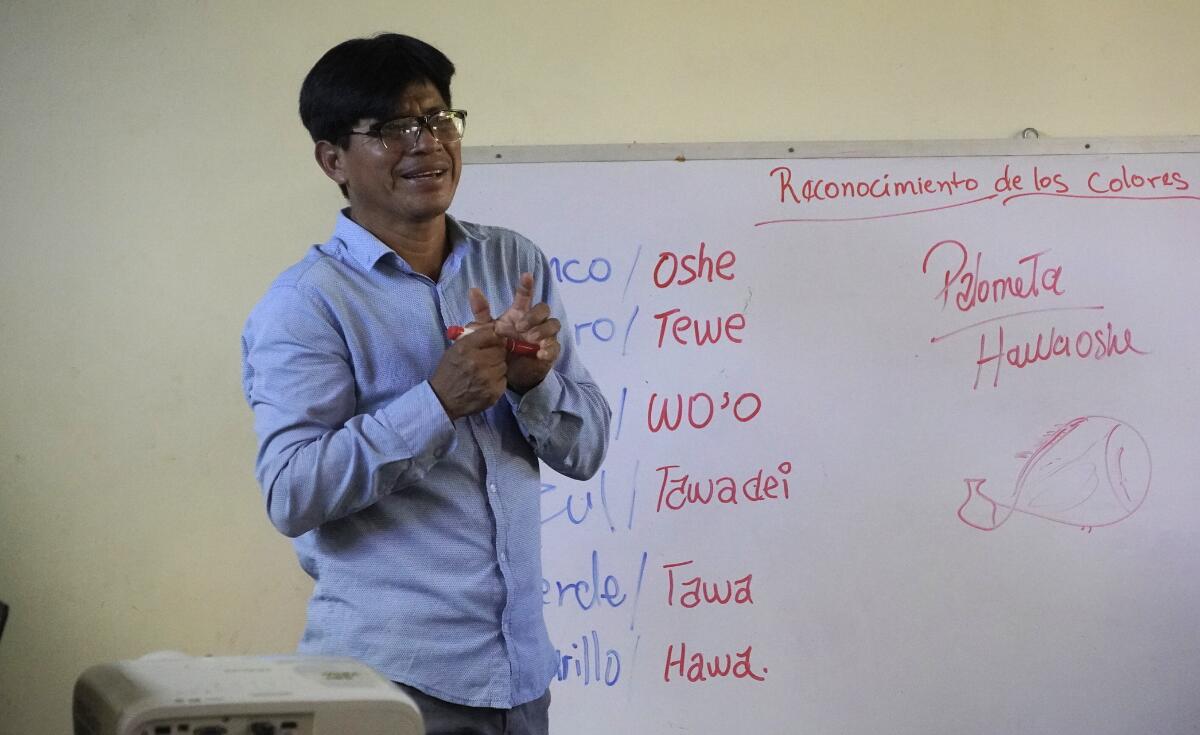 Reconocimiento de los Colores
nco / Oshe
ro / Tewe
/ WO'O
zul / Tawadei
erde / Tawa
rillo / Hawa.
Palometa
Hawaoshe